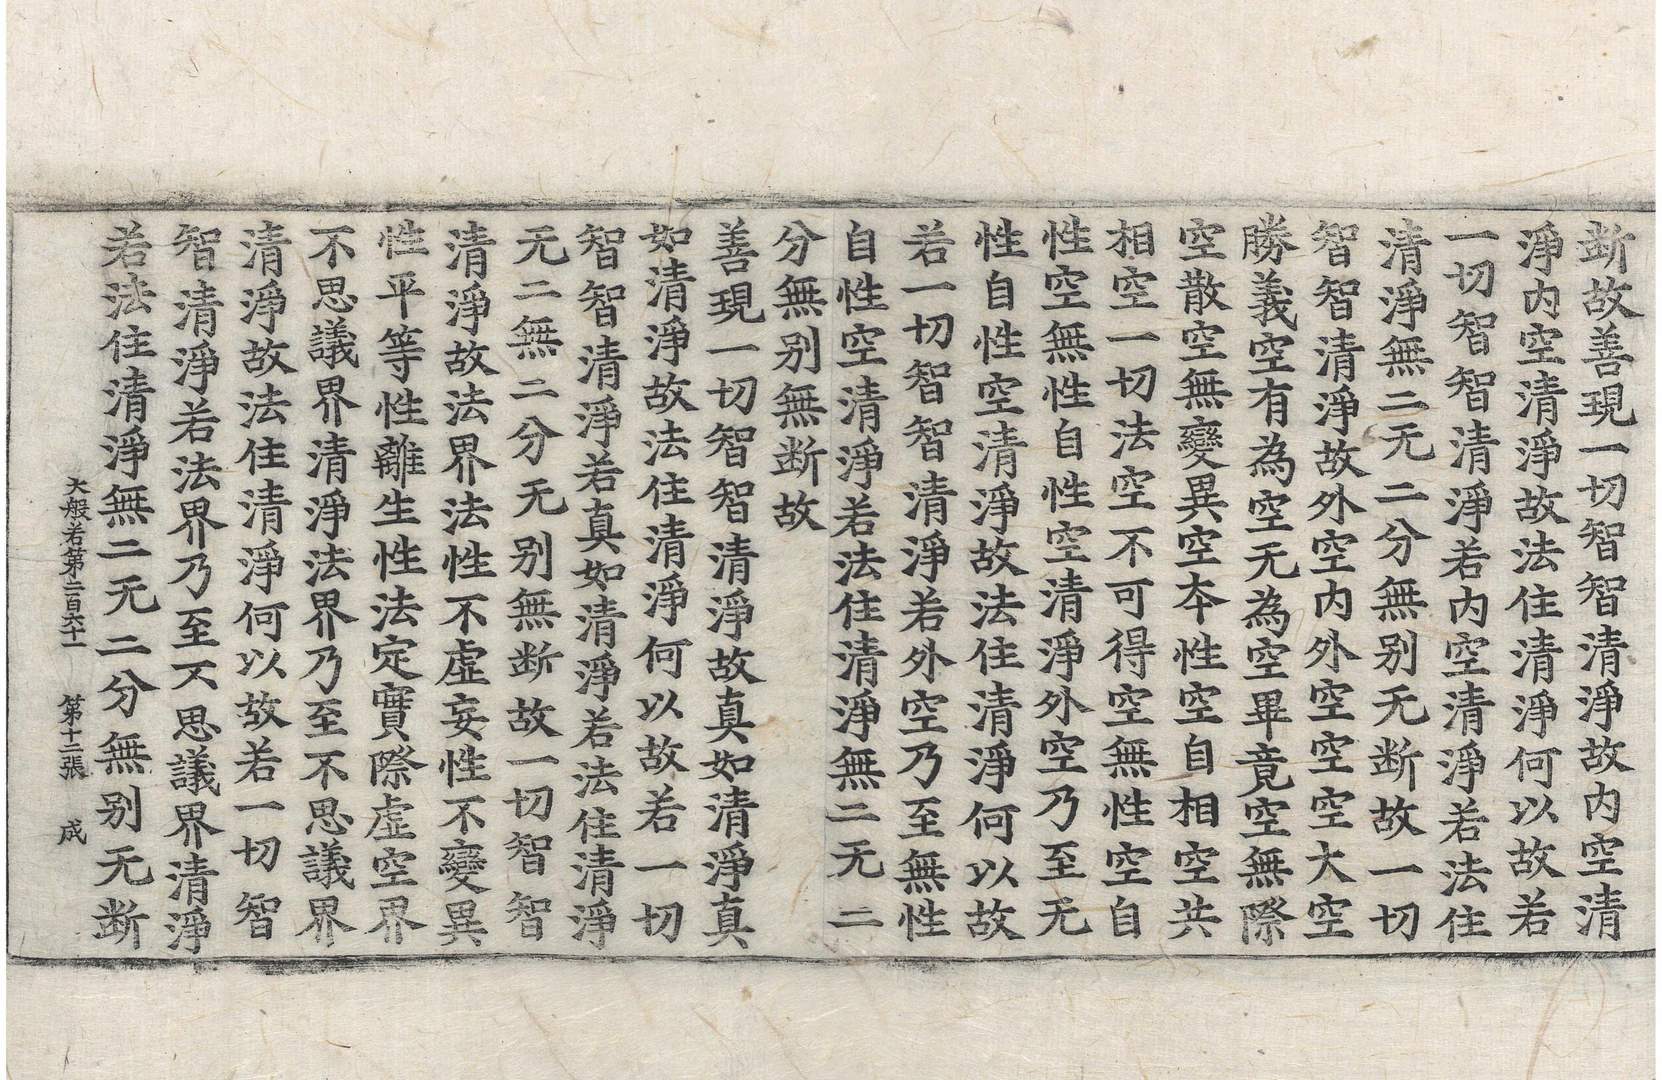 断故善現一切智智清淨故内空清
淨内空清淨故法住清淨何以故若
一切智智清淨若内空清淨若法住
清淨無二无二分無别无断故一切
智智清淨故外空内外空空空大空
勝義空有為空无為空畢竟空無際
空散空無變異空夲性空自相空共
相空一切法空不可得空無性空自
性空無性自性空清淨外空乃至无
性自性空清淨故法住清淨何以故
若一切智智清淨若外空乃至無性
自性空清淨若法住清淨無二无二
分無别無断故
善現一切智智清淨故真如清淨真
如清淨故法住清淨何以故若一切
智智清淨若真如清淨若法住清淨
无二無二分无别無断故一切智智
清淨故法界法性不虚妄性不變異
性平等性離生性法定實際虚空界
不思議界清淨法界乃至不思議界
清淨故法住清淨何以故若一切智
智清淨若法界乃至不思議界清淨
若法住清淨無二无二分無别无断
大般若第二百六十一 第十二張 成